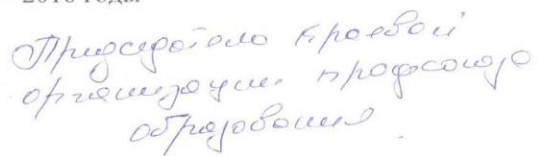 2010 годы
Председателю краевой
организации профсоюза
образования